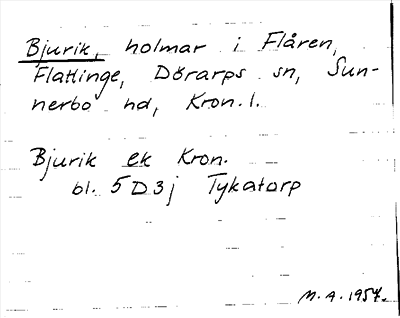 Bjurik, holmar i Flåren,
Flatlinge, Dörarps sn, Sun-
nerbo hd, Kron. l.
Bjurik ek Kron.
bl. 5D3j Tykatorp
M.A. 1957.